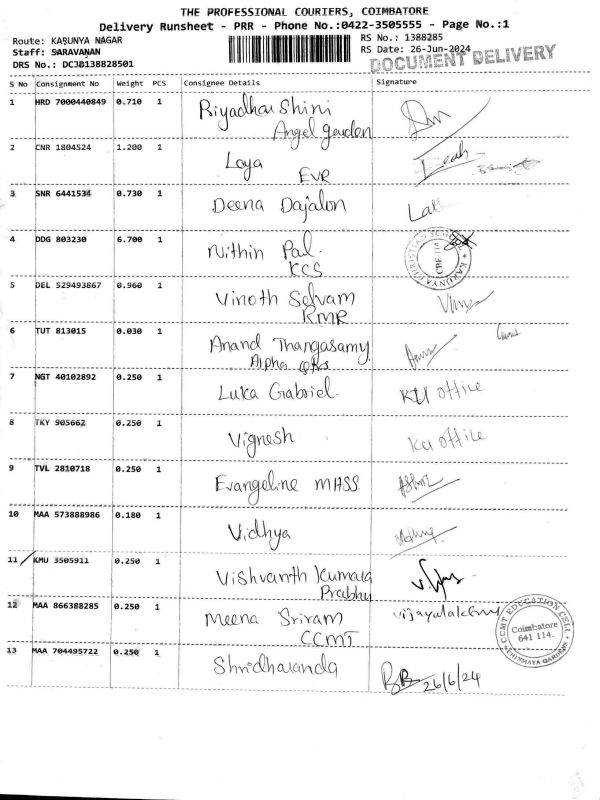 THE PROFESSIONAL COURIERS, COIMBATORE
Delivery Runsheet - PRR - Phone No.:0422-3505555 - Page No.:1
Route: KARUNYA NAGAR RS No.: 1388285
Staff: SARAVANAN RS Date: 26-Jun-2024
DOCUMENT DELIVERY
DRS No.: DCJB138828501
S No Consignment No Weight PCS Consignee Details Signature
1 HRD 7000440849 0.710 1 Riyadharshini
Angel garden
2 CNR 1804524 1.200 1 Laya Leah
EVR
3 SNR 6441534 0.730 1 Deena Dajalon
4 DDG 803230 6.700 1 Nithin Paul.
KCS
KARUNYA CHRISTIAN SCHOOL
CBE 114
5 DEL 529493867 0.960 1 Vinoth Selvam
RMR
6 TUT 813015 0.030 1 Anand Thangasamy
Alpha
7 NGT 40102892 0.250 1 Luka Gabriel. KU office
8 TKY 905662 0.250 1 Vignesh KU office
9 TVL 2810718 0.250 1 Evangeline MASS
10 MAA 573888986 0.180 1 Vidhya
11 KMU 3505911 0.250 1 Vishvanth Kumara
Prabhu
12 MAA 866388285 0.250 1 Meena Sriram
CCMT
CCMT EDUCATION CELL
Coimbatore
641 114.
CHINMAYA GARDENS
13 MAA 704495722 0.250 1 Shridharanda
26/6/24